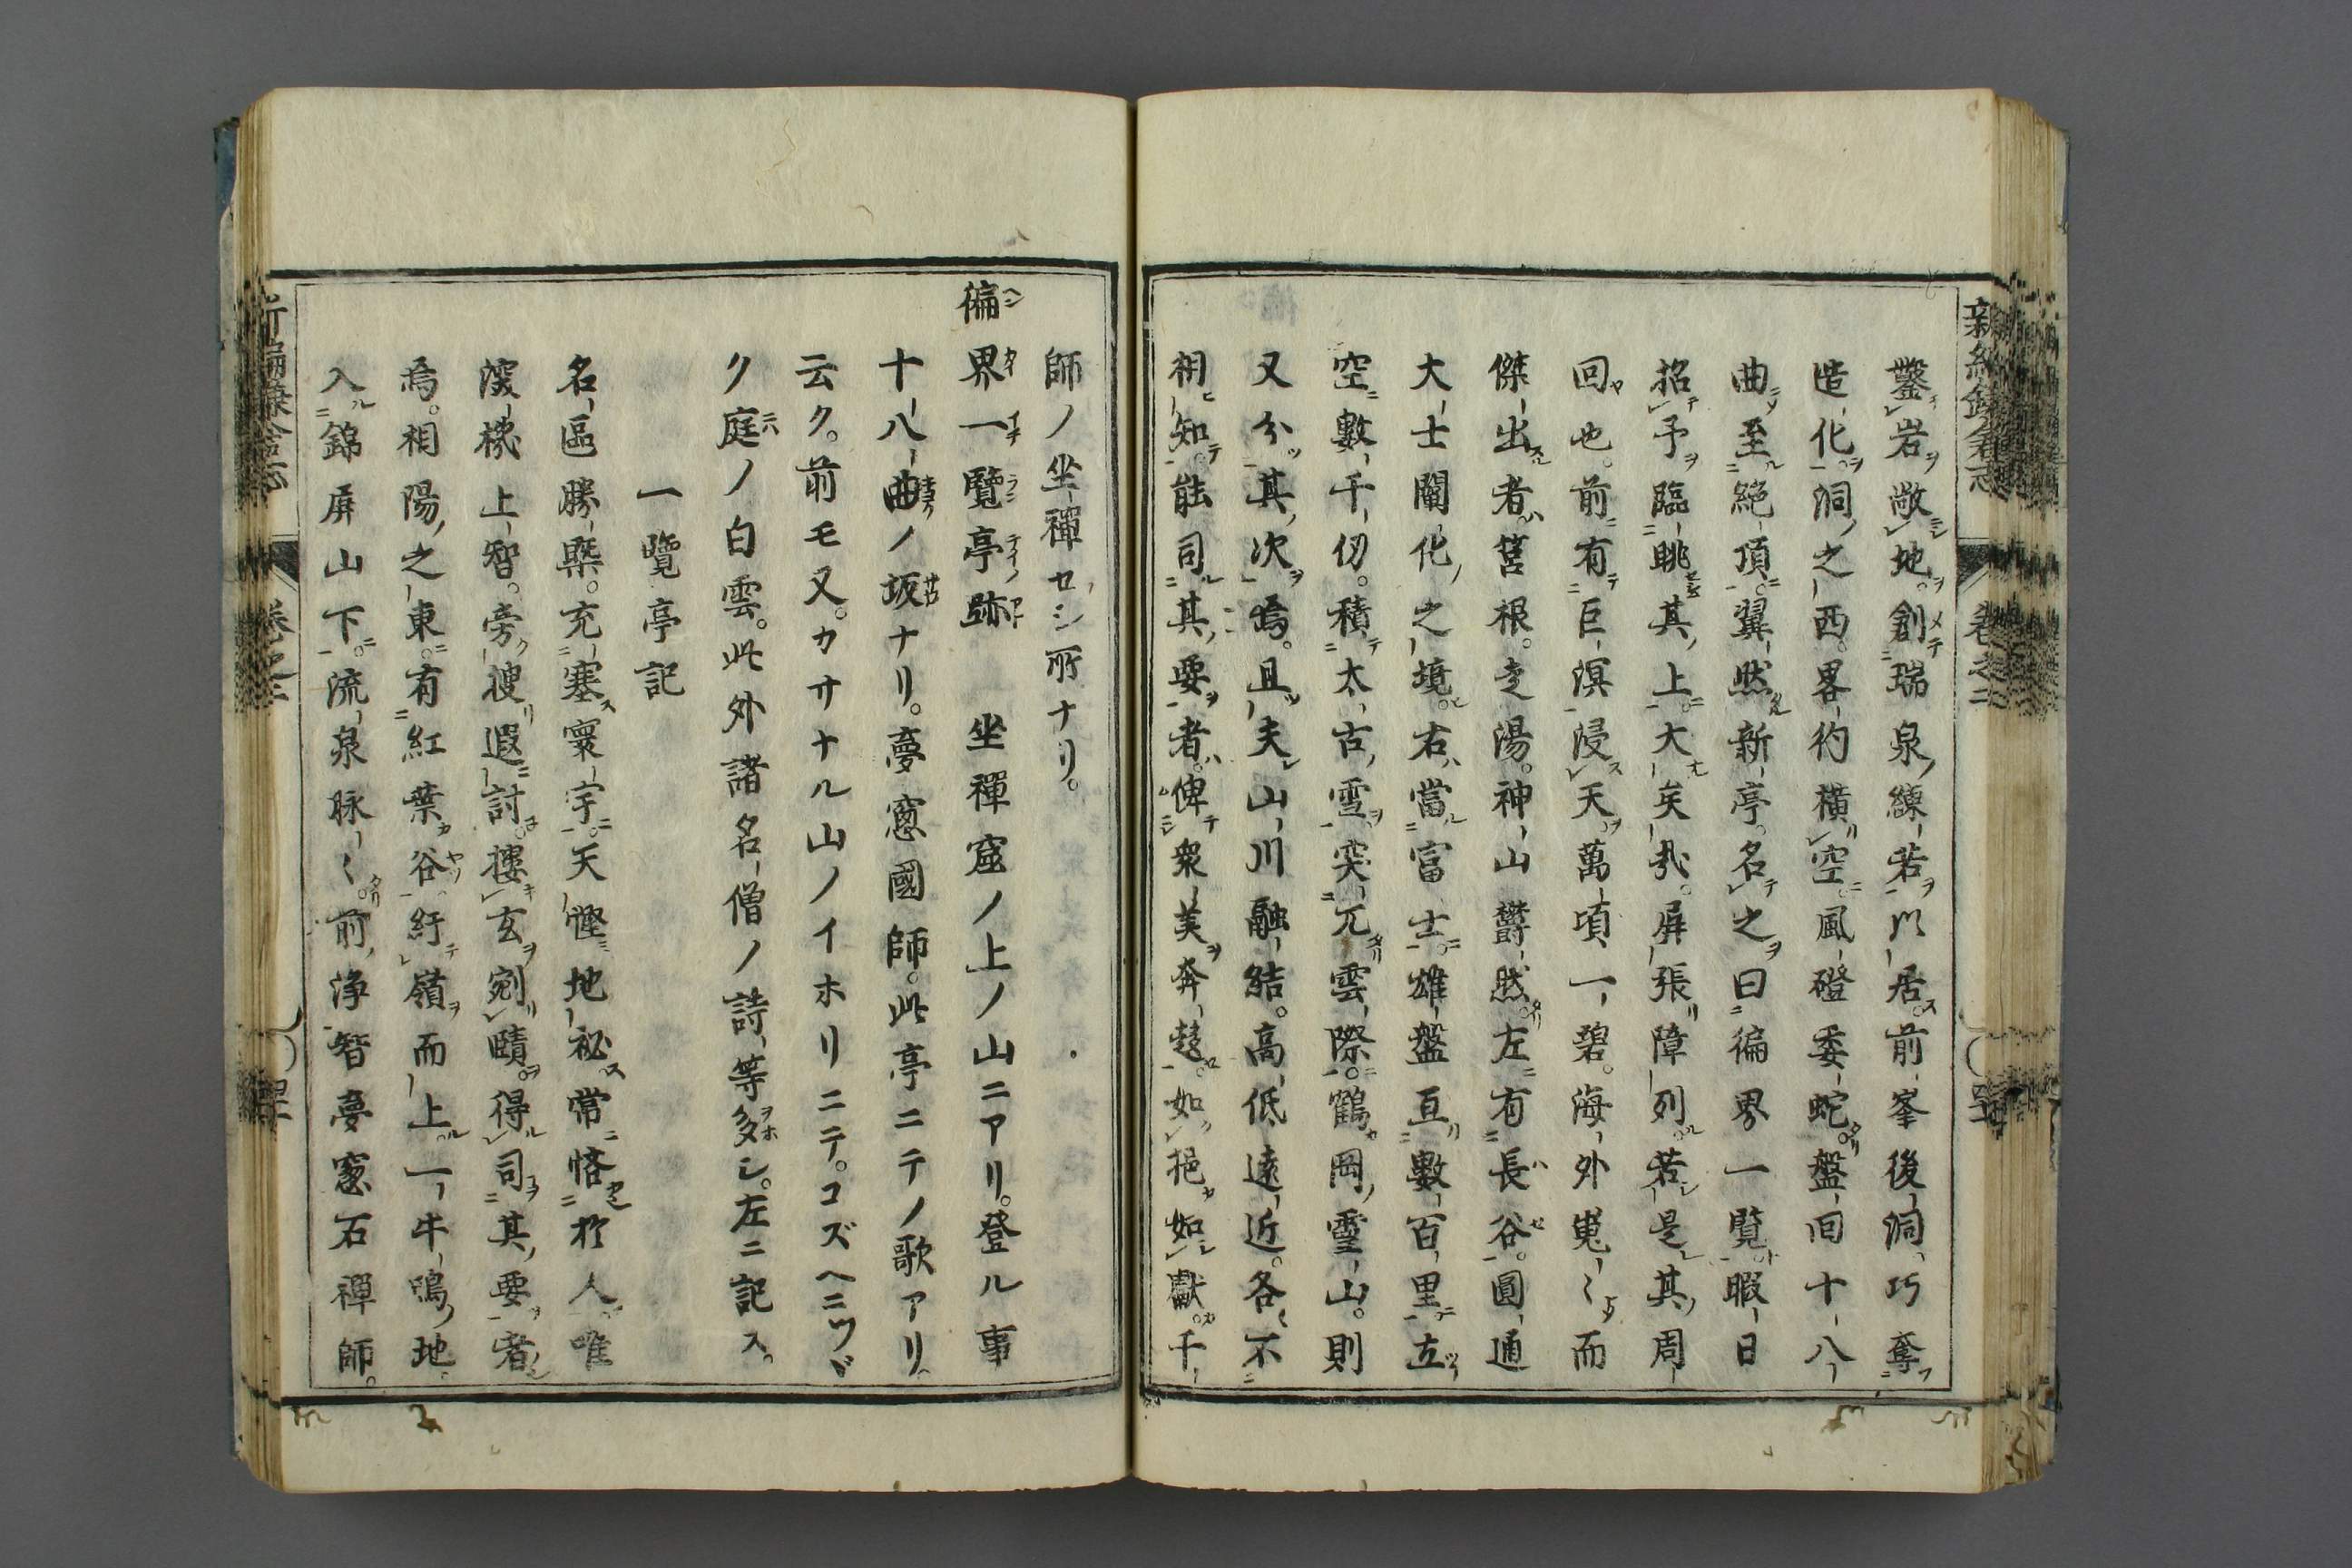 新編鎌倉志 卷之二
鑿岩敞地。創瑞泉練若以居。前峯後洞巧奪
造化。洞之西。畧彴横空。風磴委蛇。盤囘十八
曲至絶頂。翼然新亭。名之曰徧界一覧。暇日
招予臨眺其上。大矣哉。屏張障列。若是其周
回也。前有巨溟浸天。萬頃一碧。海外嵬〻而
傑出者。筥根。走湯。神山欝然。左有長谷。圓通
大士闡化之境。右當富士。雄盤亘數百里。立
空數千仭。積太古雪。突兀雲際。鶴岡靈山。則
又分其次焉。且夫山川融結。高低遠近。各不
相知。能司其要者。俾衆美奔趍。如挹如獻。千
師ノ坐禪セシ所ナリ。
徧界一覽亭跡 坐禪窟ノ上ノ山ニアリ。登ル事
十八曲ノ坂ナリ。夢窓國師。此亭ニテノ歌アリ。
云ク。前モ又。カサナル山ノイホリニテ。コズヘニツヾ
ク庭ノ白雲。此外諸名僧ノ詩等多シ。左ニ記ス。
一覽亭記
名區勝槩。充塞寰宇。天慳地祕。常悋於人。唯
深機上智。旁捜遐討。摟玄剜賾。得司其要者
焉。相陽之東。有紅葉谷。紆嶺而上。一牛鳴地。
入錦屏山下。流泉脉〻。前淨智夢窓石禪師。
新編鎌倉志 卷之二